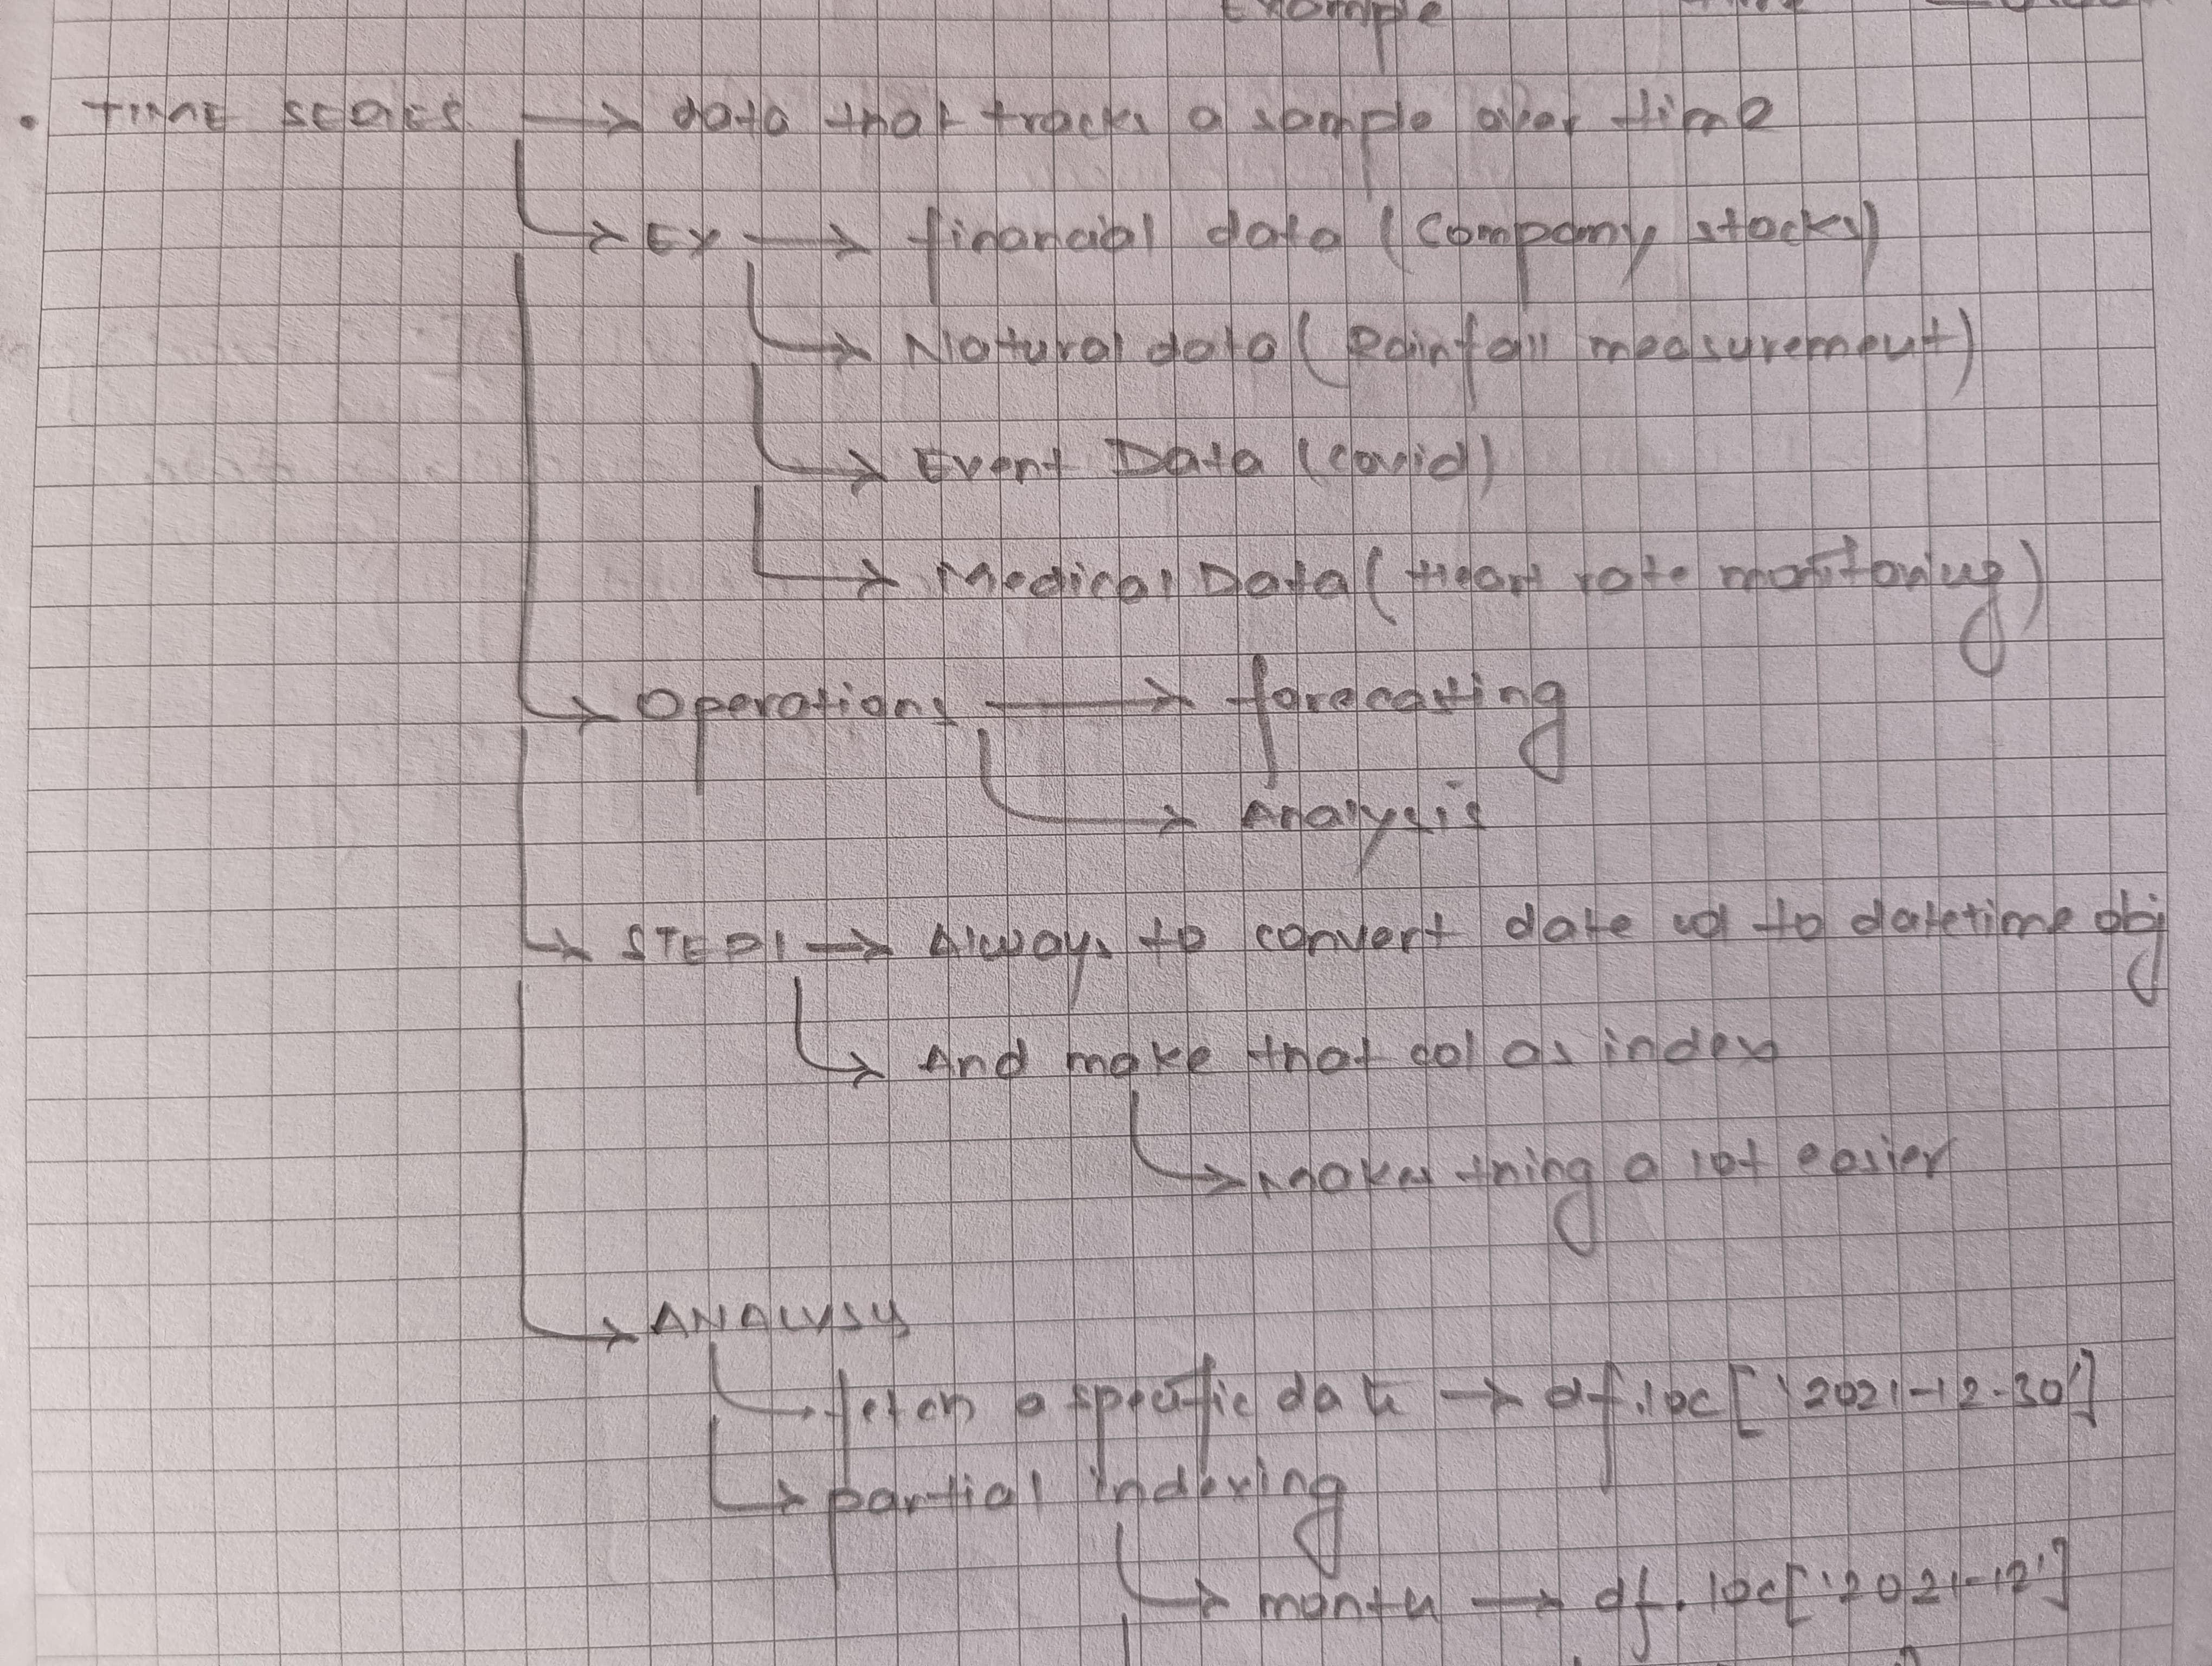 Example
• TIME SERIES → data that tracks a sample over time
→ EX → financial data (Company stocks)
→ Natural data (Rainfall measurement)
→ Event Data (covid)
→ Medical Data (Heart rate monitoring)
→ Operations → forecasting
→ Analysis
→ STEP1 → Always to convert date col to datetime obj
→ And make that col as index
→ makes thing a lot easier
→ ANALYSIS
→ fetch a specific date → df.loc['2021-12-30']
→ partial indexing
→ month → df.loc['2021-12']